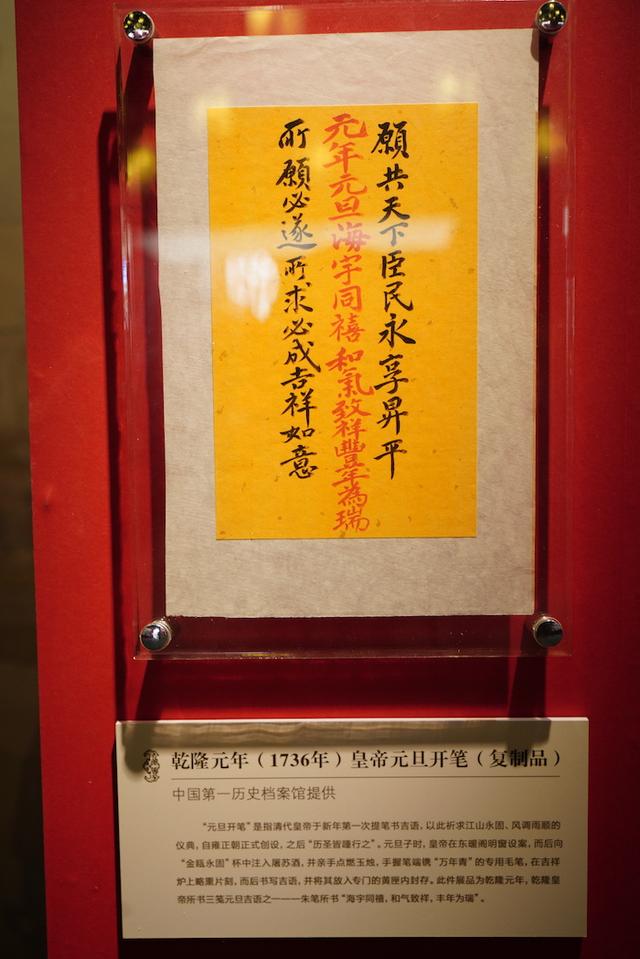 願共天下臣民永享昇平
元年元旦海宇同禧和氣致祥豐年為瑞
所願必遂所求必成吉祥如意
乾隆元年（1736年）皇帝元旦开笔（复制品）
中国第一历史档案馆提供
“元旦开笔”是指清代皇帝于新年第一次提笔书吉语，以此祈求江山永固、风调雨顺的
仪典，自雍正朝正式创设，之后“历圣皆踵行之”。元旦子时，皇帝在东暖阁明窗设案，而后向
“金瓯永固”杯中注入屠苏酒，并亲手点燃玉烛，手握笔端镌“万年青”的专用毛笔，在吉祥
炉上略熏片刻，而后书写吉语，并将其放入专门的黄匣内封存。此件展品为乾隆元年，乾隆皇
帝所书三笺元旦吉语之一——朱笔所书“海宇同禧，和气致祥，丰年为瑞”。